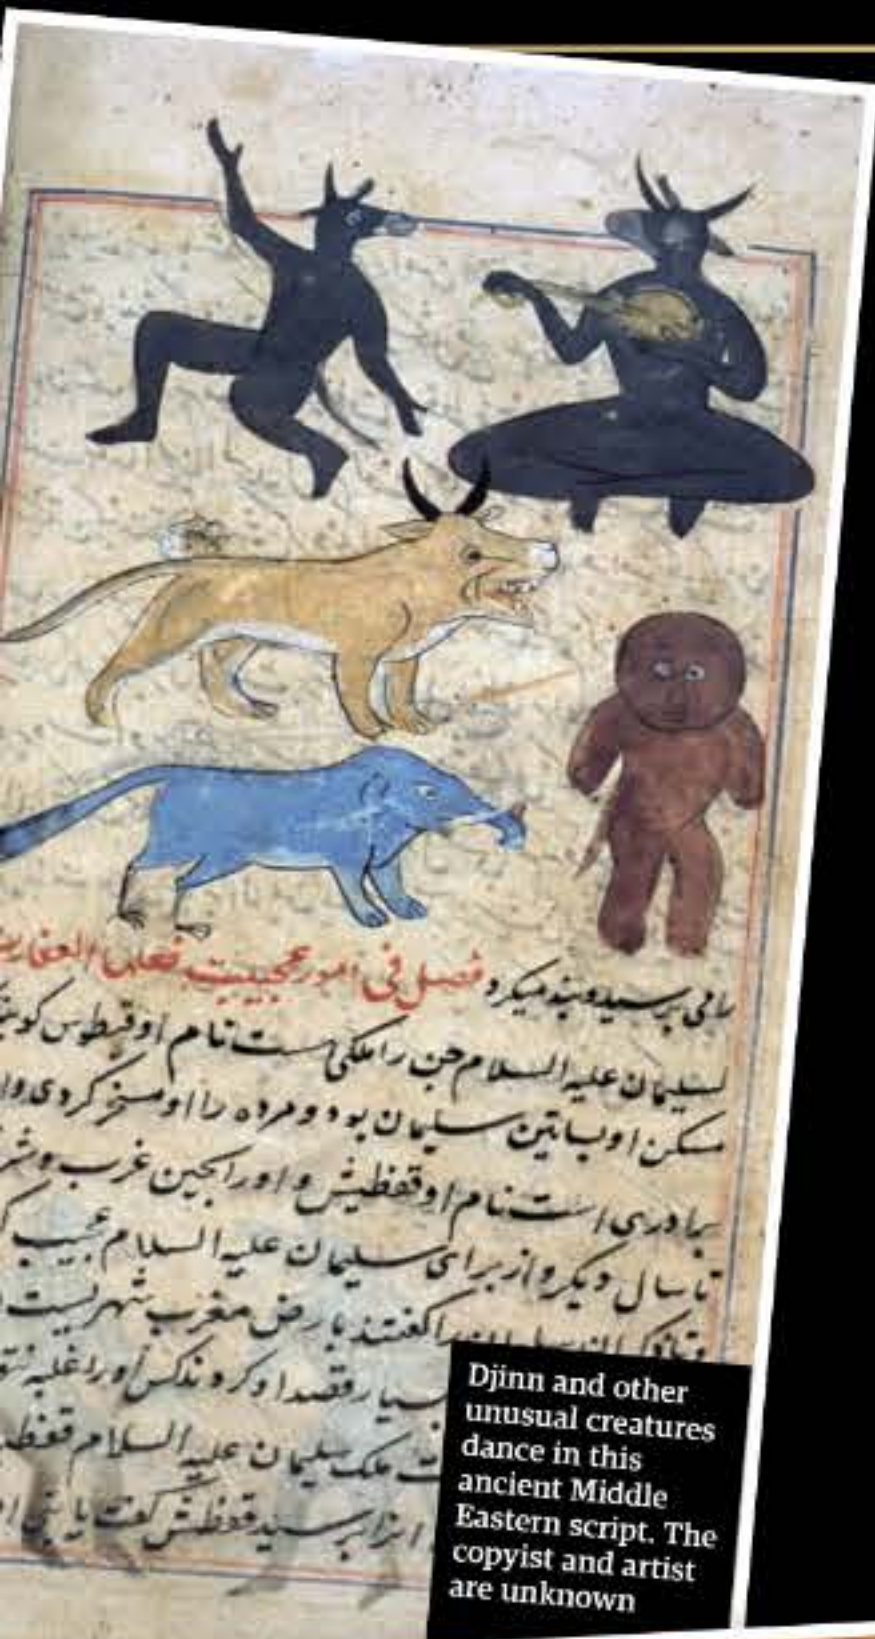 رامی پرسید و پند میکرد فصل فی امور عجیبت فعلها العفاریت
لسلیمان علیه السلام جن را ملکی است نام او قطوس کو
مسکن او بساتین سلیمان بود و مرده را او مسخر کردی
برادری است نام او قفطیش و اورا بجین غرب و شر
تا سال دیکر و از برای سلیمان علیه السلام عجیب
را کفتند بارض مغرب شهریست
قصد او کردند کس او را غلبه
ملک سلیمان علیه السلام
پرسید قفطیش کفت یا نبی
Djinn and other
unusual creatures
dance in this
ancient Middle
Eastern script. The
copyist and artist
are unknown